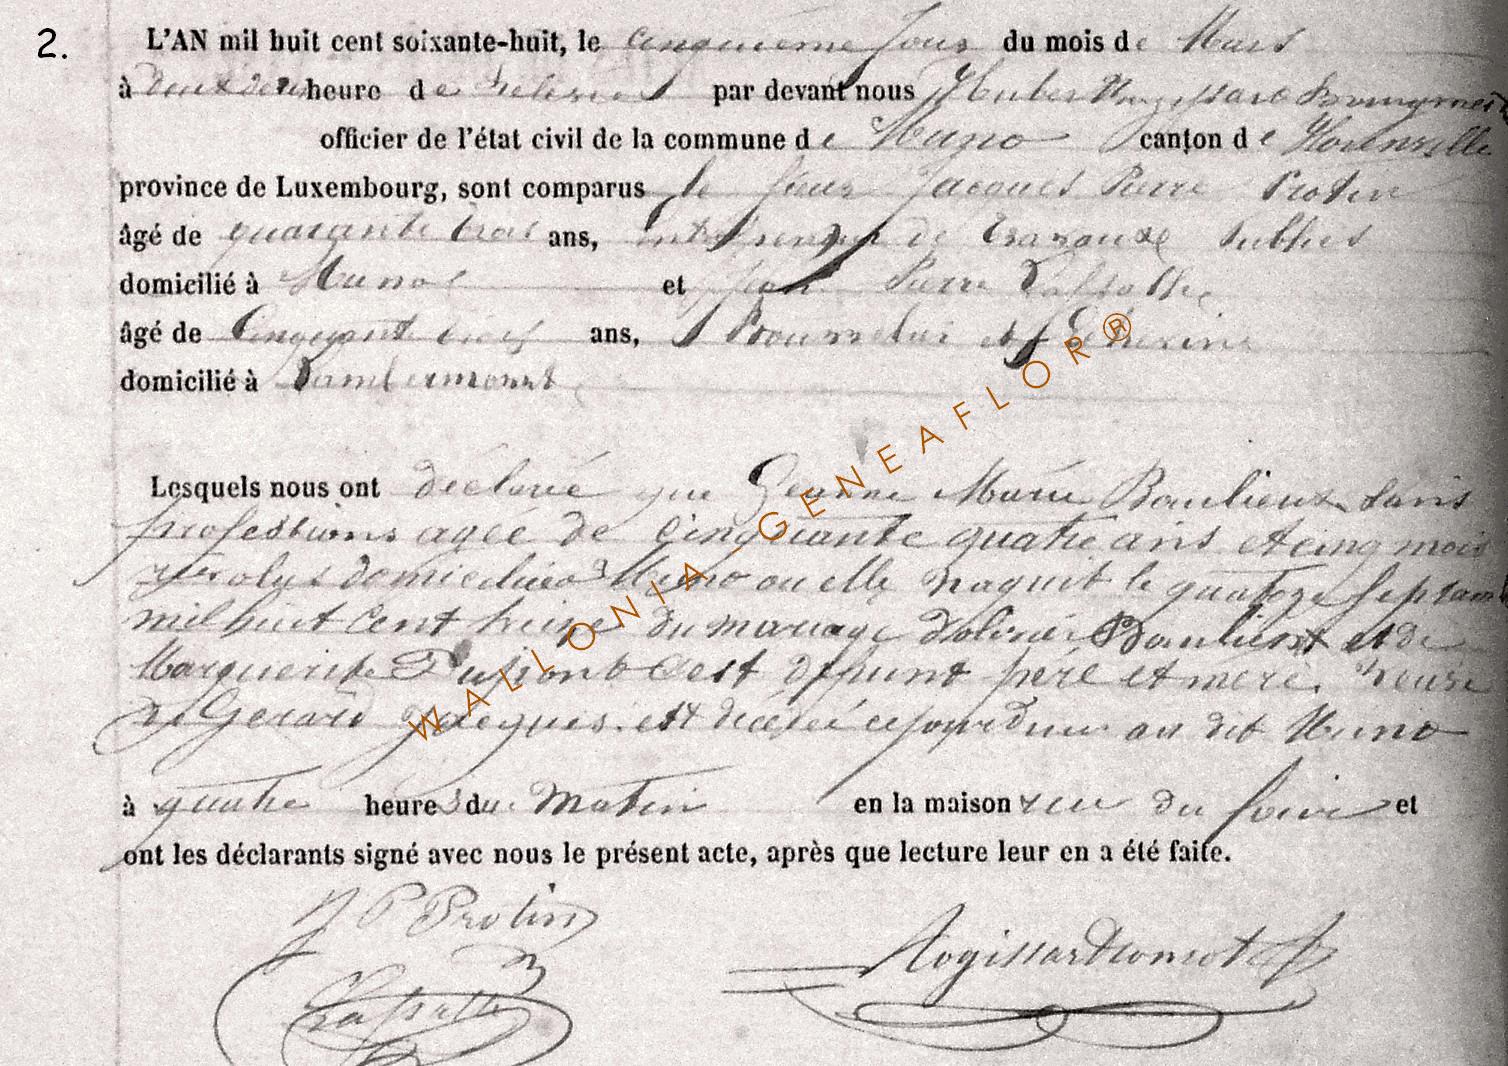 2.
L'AN mil huit cent soixante-huit, le cinquieme jour du mois de Mars
à deux heure de relevés par devant nous Hubert Bourgmestre
officier de l'état civil de la commune de Muno canton de Florenville
province de Luxembourg, sont comparus le sieur Jacques Pierre Protin
âgé de quarante trois ans, entrepreneur de travaux publics
domicilié à Muno et Jean Pierre Lassalle
âgé de Cinquante trois ans, Bourrelier
domicilié à Lambermont
Lesquels nous ont déclaré que Jeanne Marie Baulieux sans
professions agée de cinquante quatre ans et cinq mois
revolus domiciliée à Muno ou elle naquit le quatoze septem
mil huit cent treize du mariage d'olivier Baulieux et de
Marguerite Dupont Cest défunt père et mère. veuve
de Gerard Jacques. est decedée cejourdhui au dit Muno
à quatre heures du Matin en la maison rue du foire et
ont les déclarants signé avec nous le présent acte, après que lecture leur en a été faite.
J P Protin
Lassalle
WALLONIA-GENEAFLOR®